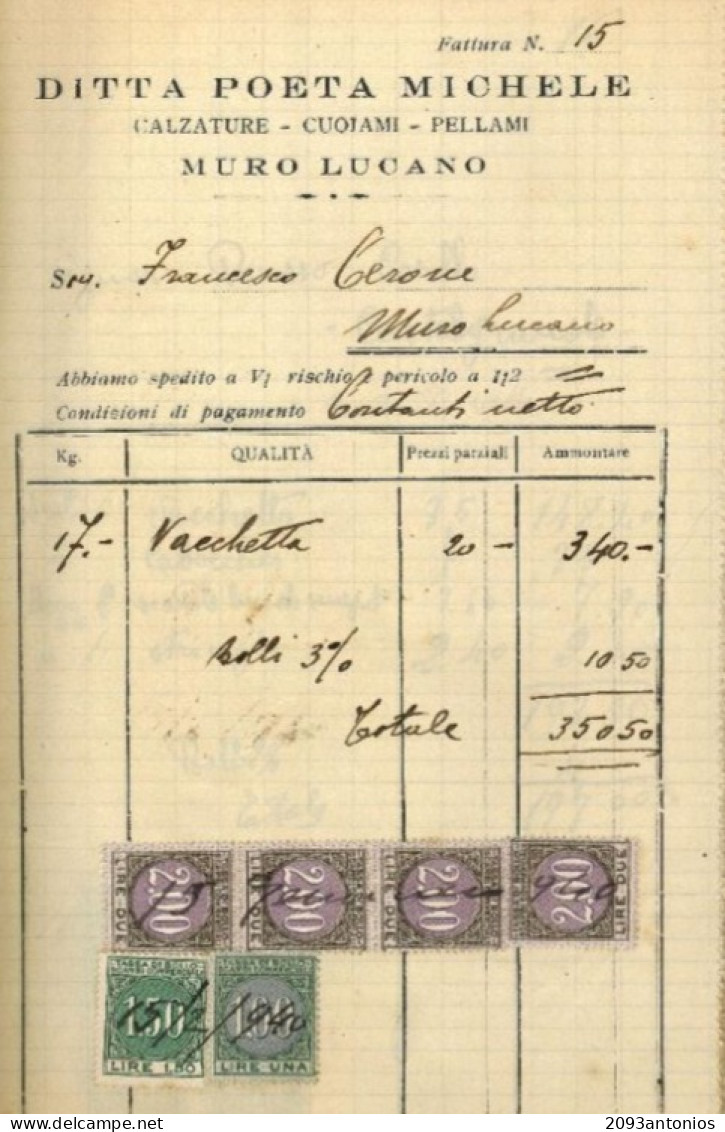 Fattura N. 15
DITTA POETA MICHELE
CALZATURE - CUOJAMI - PELLAMI
MURO LUCANO
Sig. Francesco Cerone
Muro Lucano
Abbiamo spedito a V/ rischio e pericolo a 1/2 =
Condizioni di pagamento Contanti netto
Kg. QUALITÀ Prezzi parziali Ammontare
17.- Vacchetta 20 - 340.-
Bolli 3% 10 50
Totale 350 50
2,00 2,00 2,00 2,00
LIRE DUE LIRE DUE LIRE DUE LIRE DUE
15 940
TASSA DI BOLLO
1.50 1.00
15/2/940
LIRE 1.50 LIRE UNA
2093antonios